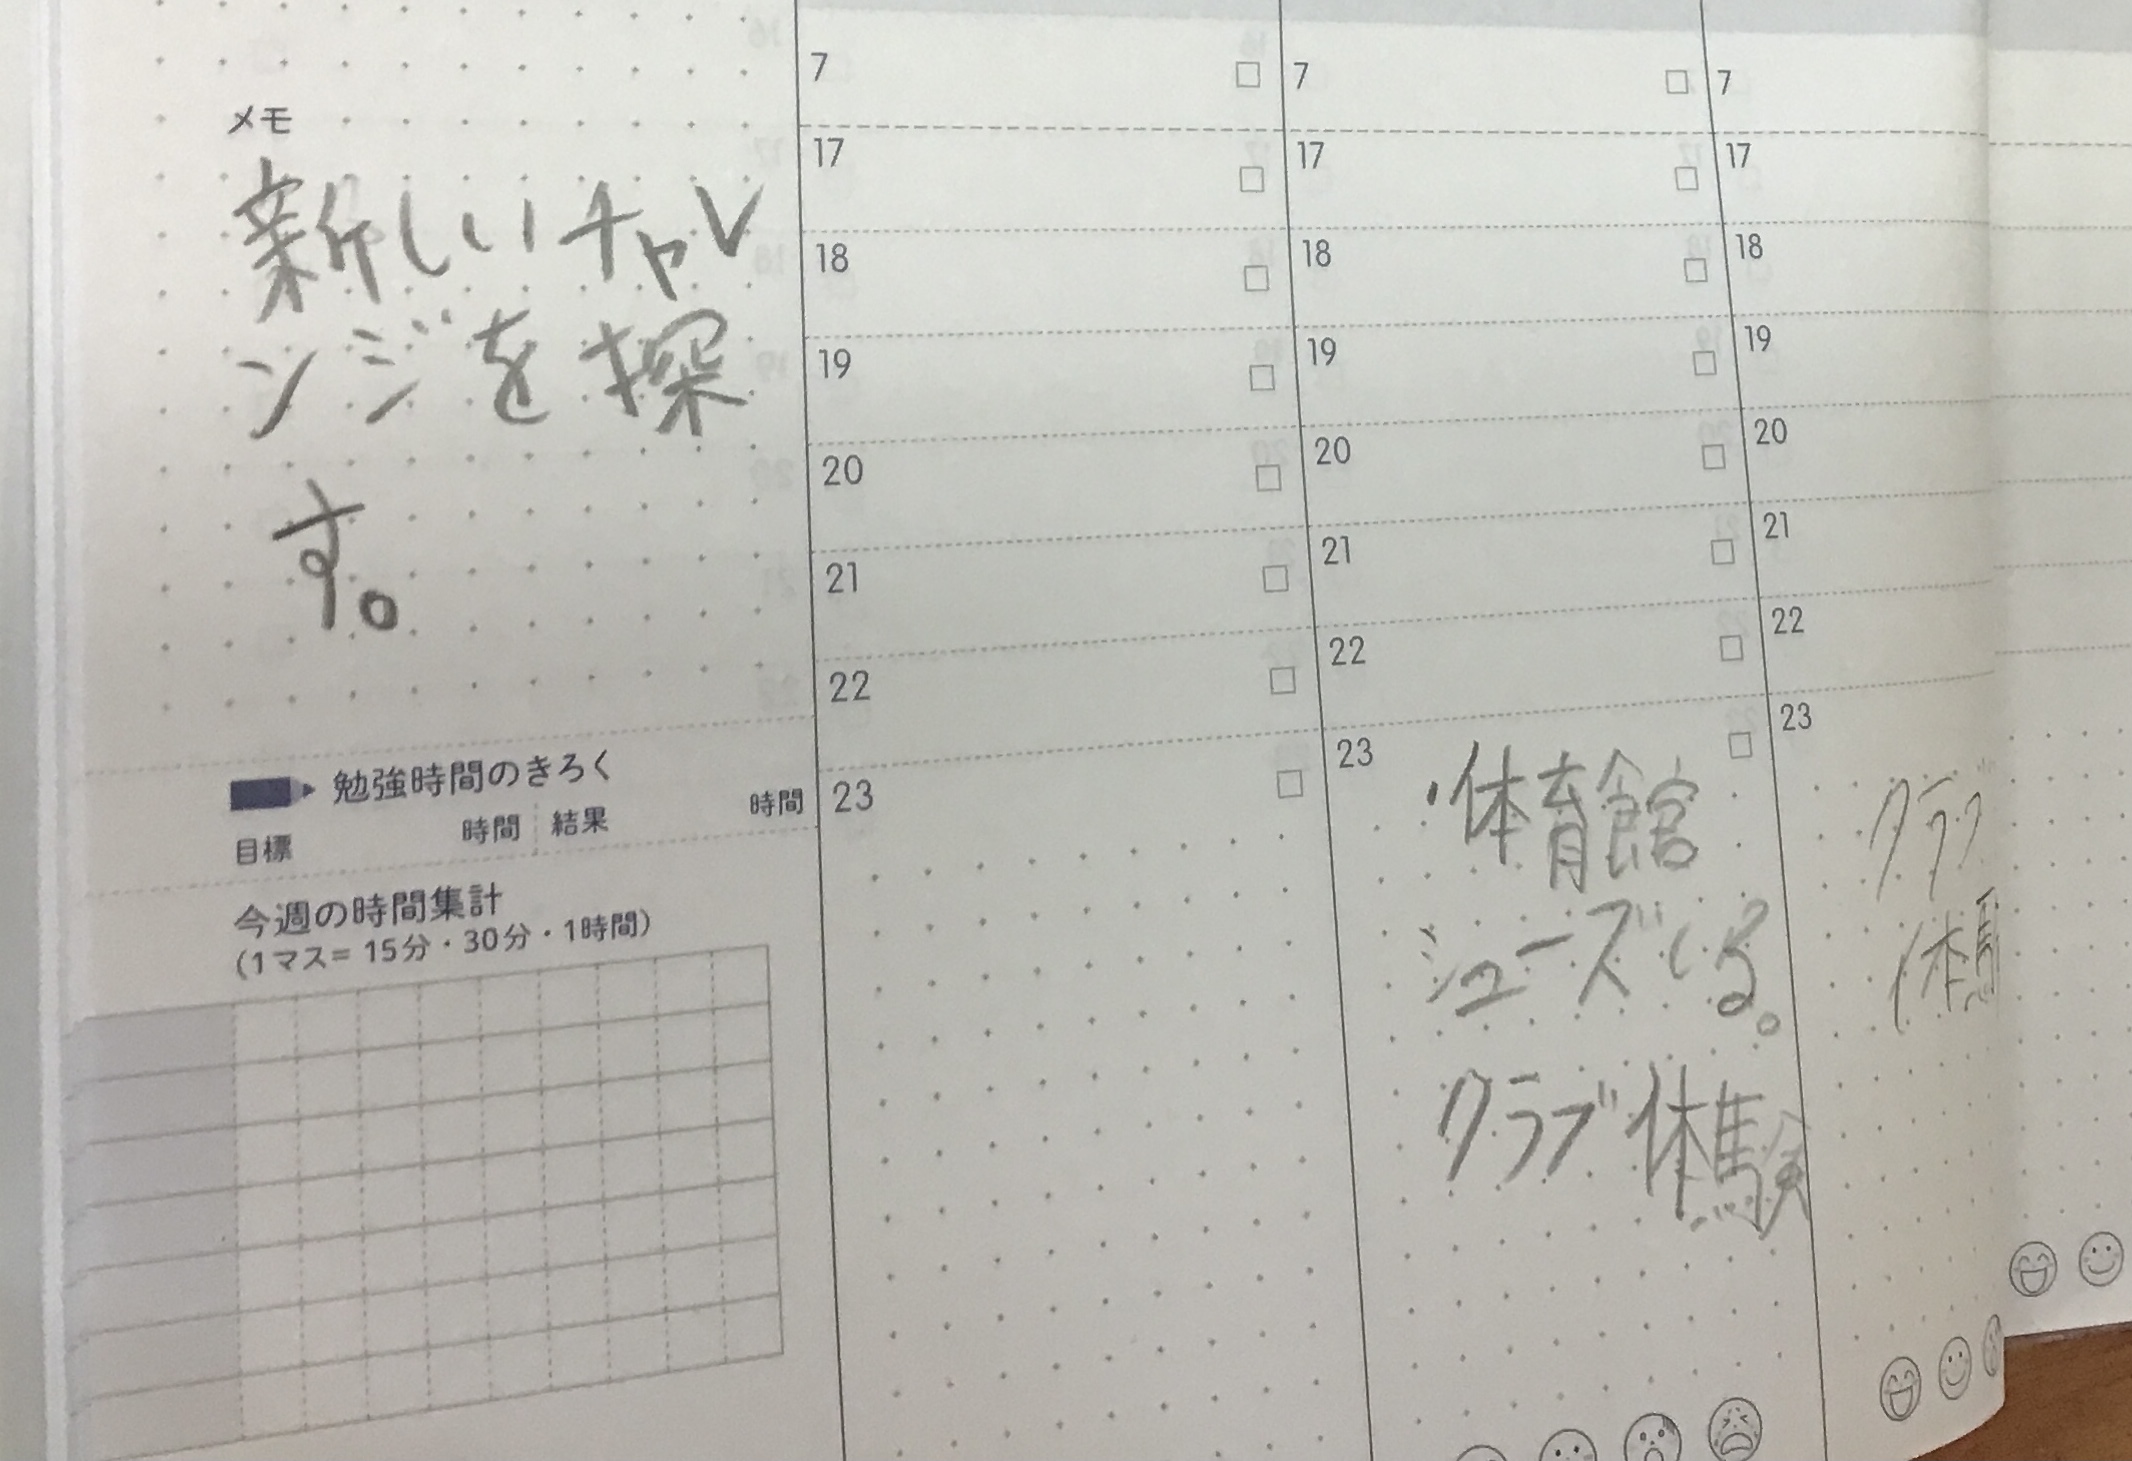 メモ
新しいチャレ
ンジを探
す。
勉強時間のきろく
目標 時間 結果 時間
今週の時間集計
(1マス= 15分・30分・1時間)
7
17
18
19
20
21
22
23
7
17
18
19
20
21
22
23
・体育館
シューズいる。
クラブ体験
7
17
18
19
20
21
22
23
クラブ
体